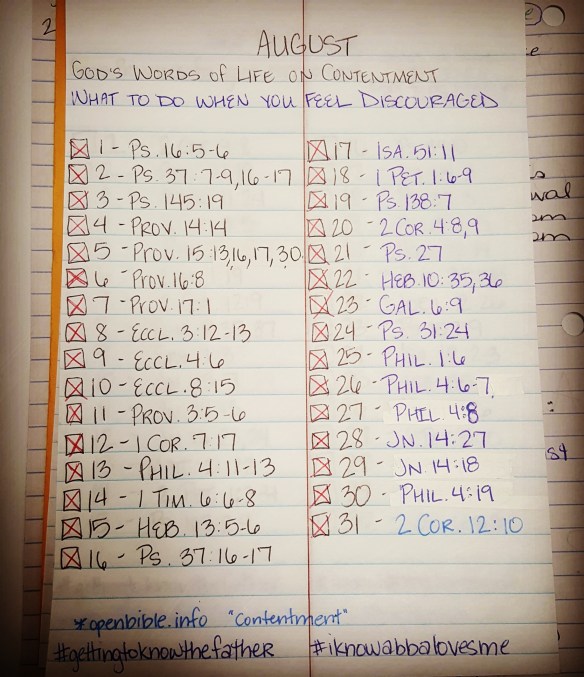 AUGUST
GOD'S WORDS OF LIFE ON CONTENTMENT
WHAT TO DO WHEN YOU FEEL DISCOURAGED
1 - PS. 16:5-6
2 - PS. 37:7-9,16-17
3 - PS. 145:19
4 - PROV. 14:14
5 - PROV. 15:13,16,17,30
6 - PROV. 16:8
7 - PROV. 17:1
8 - ECCL. 3:12-13
9 - ECCL. 4:6
10 - ECCL. 8:15
11 - PROV. 3:5-6
12 - 1 COR. 7:17
13 - PHIL. 4:11-13
14 - 1 TIM. 6:6-8
15 - HEB. 13:5-6
16 - PS. 37:16-17
17 - ISA. 51:11
18 - 1 PET. 1:6-9
19 - PS. 138:7
20 - 2 COR. 4:8,9
21 - PS. 27
22 - HEB. 10:35,36
23 - GAL. 6:9
24 - PS. 31:24
25 - PHIL. 1:6
26 - PHIL. 4:6-7
27 - PHIL. 4:8
28 - JN. 14:27
29 - JN 14:18
30 - PHIL. 4:19
31 - 2 COR. 12:10
*openbible.info "contentment"
#gettingtoknowthefather #iknowabbalovesme